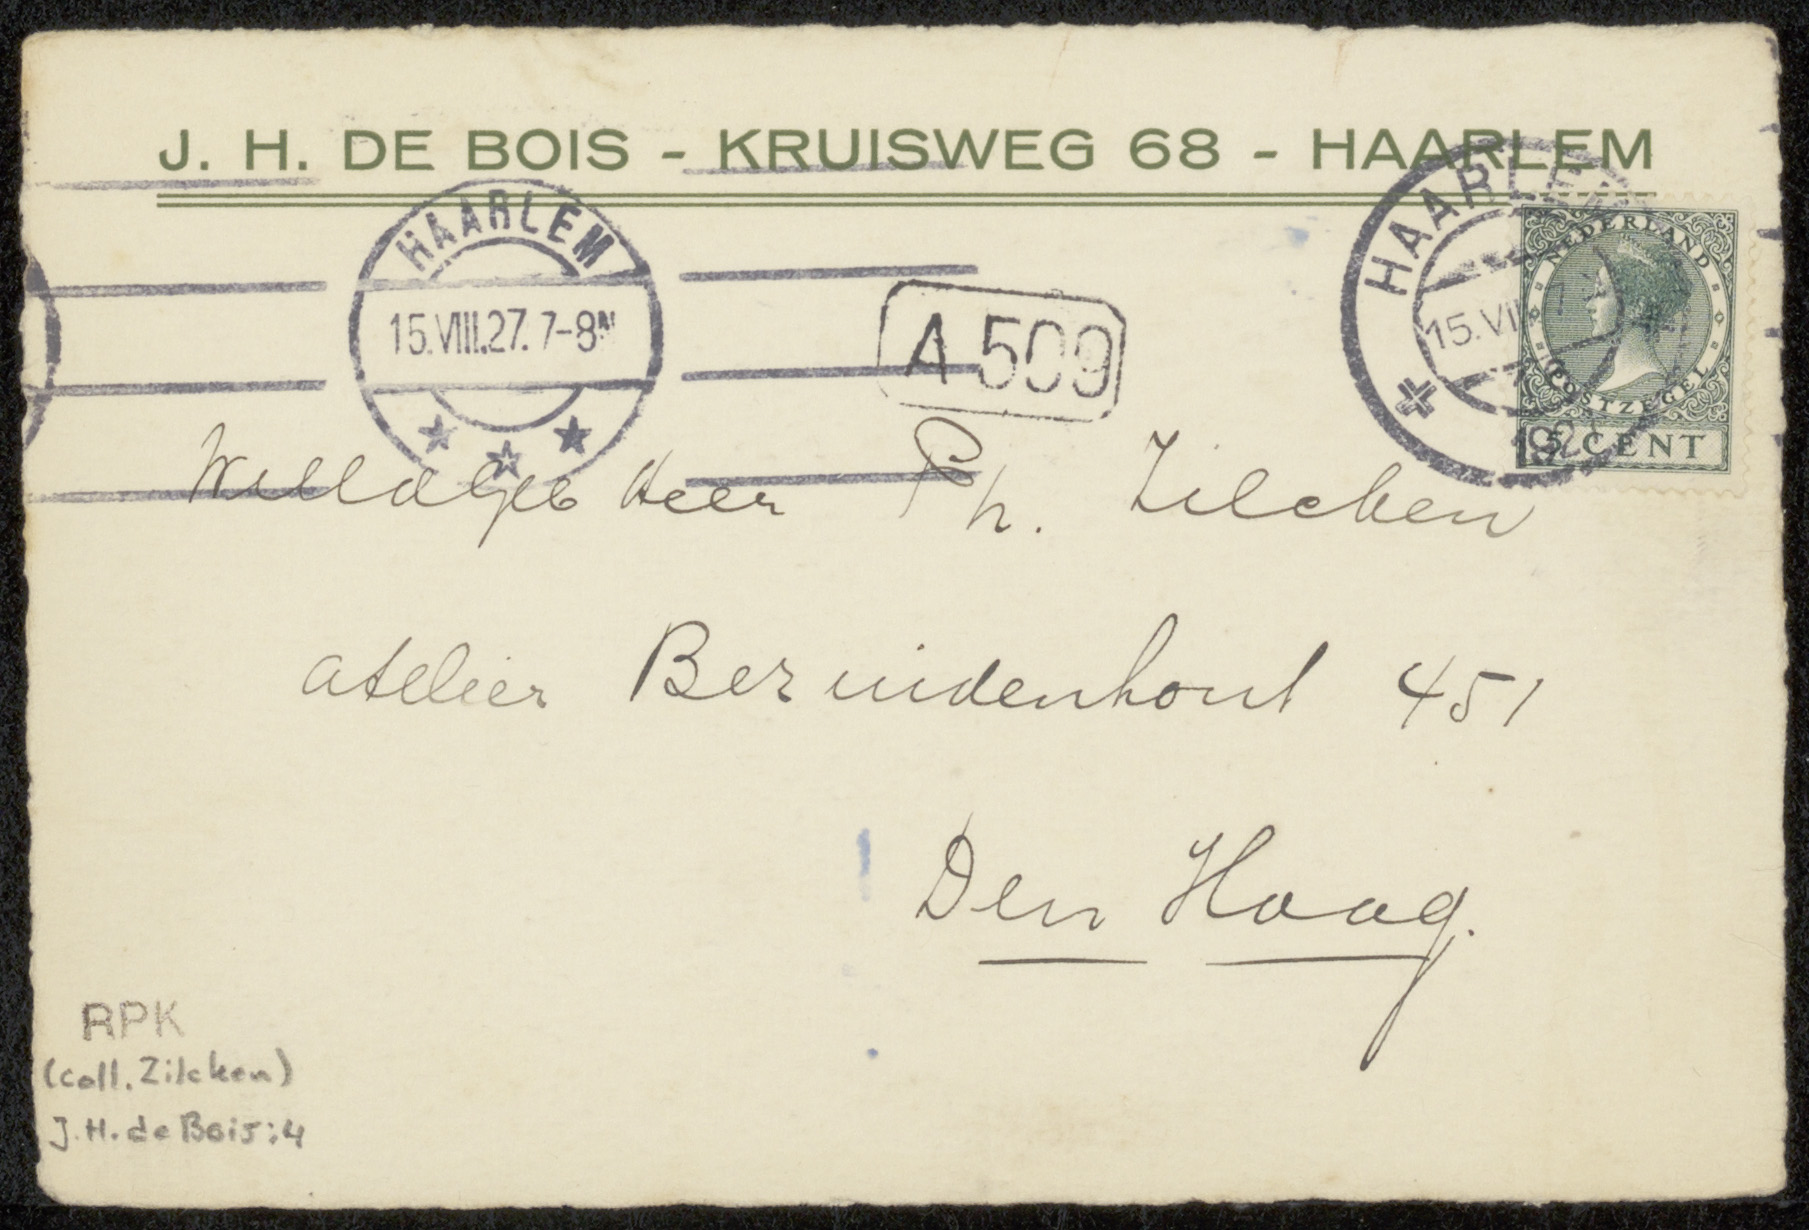 J. H. DE BOIS - KRUISWEG 68 - HAARLEM
HAARLEM
15.VIII.27. 7-8N
A 509
HAARLEM
15.VIII
192
NEDERLAND
POSTZEGEL
CENT
WelEdGeb Heer Ph. Zilcken
atelier Bezuidenhout 451
Den Haag.
RPK
(coll. Zilcken)
J.H. de Bois: 4